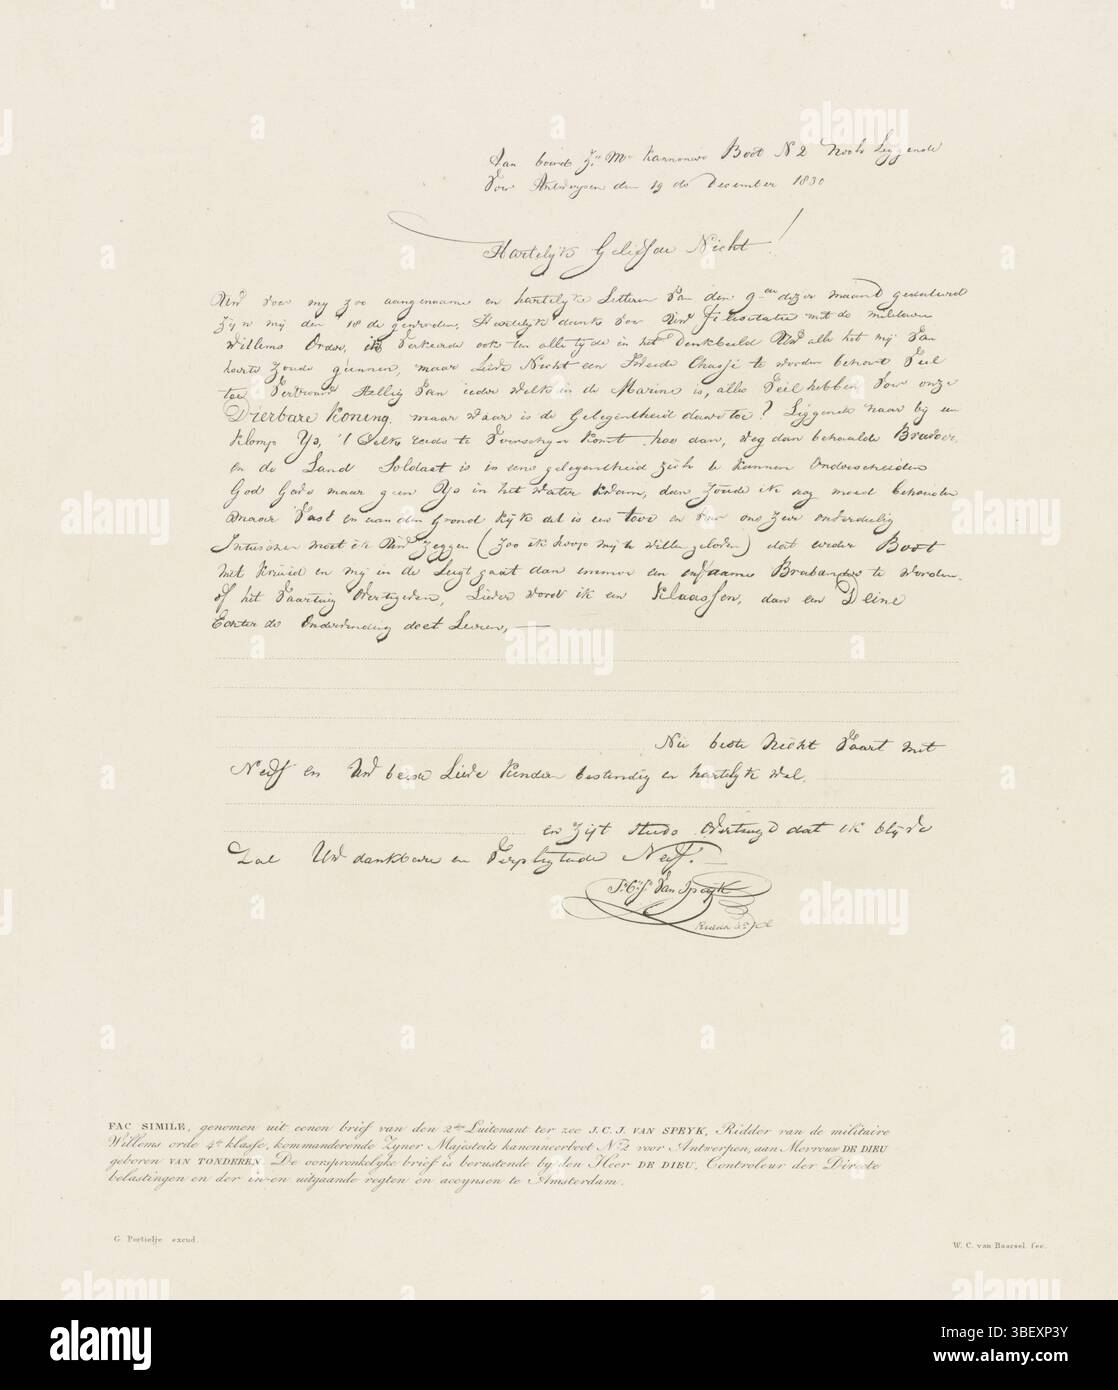 Aan boord Z.r M.s Kannonneer Boot N 2 Noch Liggende
Voor Antwerpen den 19 de December 1830
Hartelijk Geliefde Nicht!
Uwd voor mij zoo aangename en hartelijke Letteren van den 9.en dezer maand gedateerd
zijn mij den 18 de geworden, Hartelijk dank voor Uwd filisitatie met de militaire
Willems Order, ik verkeerde ook ten alle tijde in het Denkbeeld Uwd alles het mij van
harte zoude gunnen, maar Lieve Nicht een Tweede Chassé te worden behoort veel
toe vertrouwd stellig van ieder welke in de Marine is, alles veil hebben voor onze
Dierbare Koning. maar waar is de gelegentheid daar toe? Liggende naar bij een
klomp Ys, 't Welk reeds te voorschijn komt. hoe dan, weg dan behaalde
en de Land Soldaat is in eene gelegentheid zich te kunnen Onderscheiden
God Gave maar geen Ys in het water kwam, dan zoude ik nog moed behouden
maar vast en aan den grond
moet ik Uwd zeggen (zoo ik hoop mij te willen gelooven) dat eerder Boot
met Kruid en mij in de Lugt gaat dan immer een infaame Brabander te worden.
of het vaartuig overtegeven, Liever word ik een Klaassen, dan een Deine
Echter de Ondervinding doet Leeren, —
Nu beste Nicht vaart met
Neeff en Uwd beide Lieve Kinderen bestendig en hartelijk wel.
en zijt steeds Overtuijgd dat ik blijve
Zal Uwd dankbare en verpligtende Neeff.
J.C.J. Van Speijk
Ridder
FAC SIMILE, genomen uit eenen brief van den 2den Luitenant ter zee J. C. J. VAN SPEYK, Ridder van de militaire
Willems orde 4e klasse, kommanderende Zyner Majesteits kanonneerboot No. 2 voor Antwerpen, aan Mevrouw DE DIEU
geboren VAN TONDEREN. De oorspronkelyke brief is berustende by den Heer DE DIEU, Controleur der Directe
belastingen en der in-en uitgaande regten en accynsen te Amsterdam.
G. Portielje excud.
W. C. van Baarsel. fec.
alamy
Image ID: 3BEXP3Y
www.alamy.com